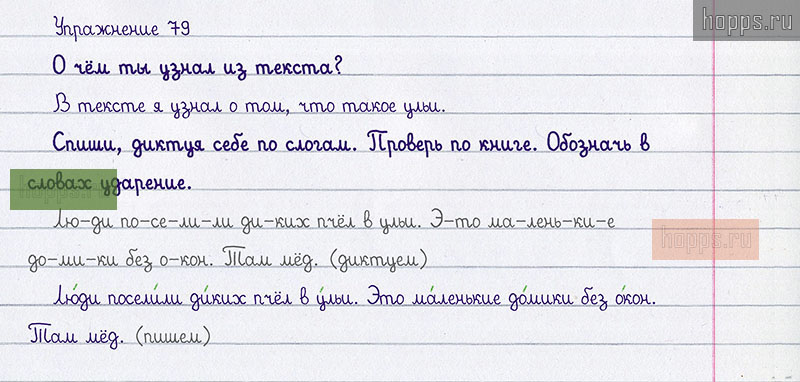 hopps.ru
Упражнение 79
О чём ты узнал из текста?
В тексте я узнал о том, что такое ульи.
Спиши, диктуя себе по слогам. Проверь по книге. Обозначь в
словах ударение.
hopps.ru
Лю-ди по-се-ли-ли ди-ких пчёл в ульи. Э-то ма-лень-ки-е
hopps.ru
до-ми-ки без о-кон. Там мёд. (диктуем)
Лю́ди посели́ли ди́ких пчёл в у́льи. Это ма́ленькие до́мики без о́кон.
Там мёд. (пишем)